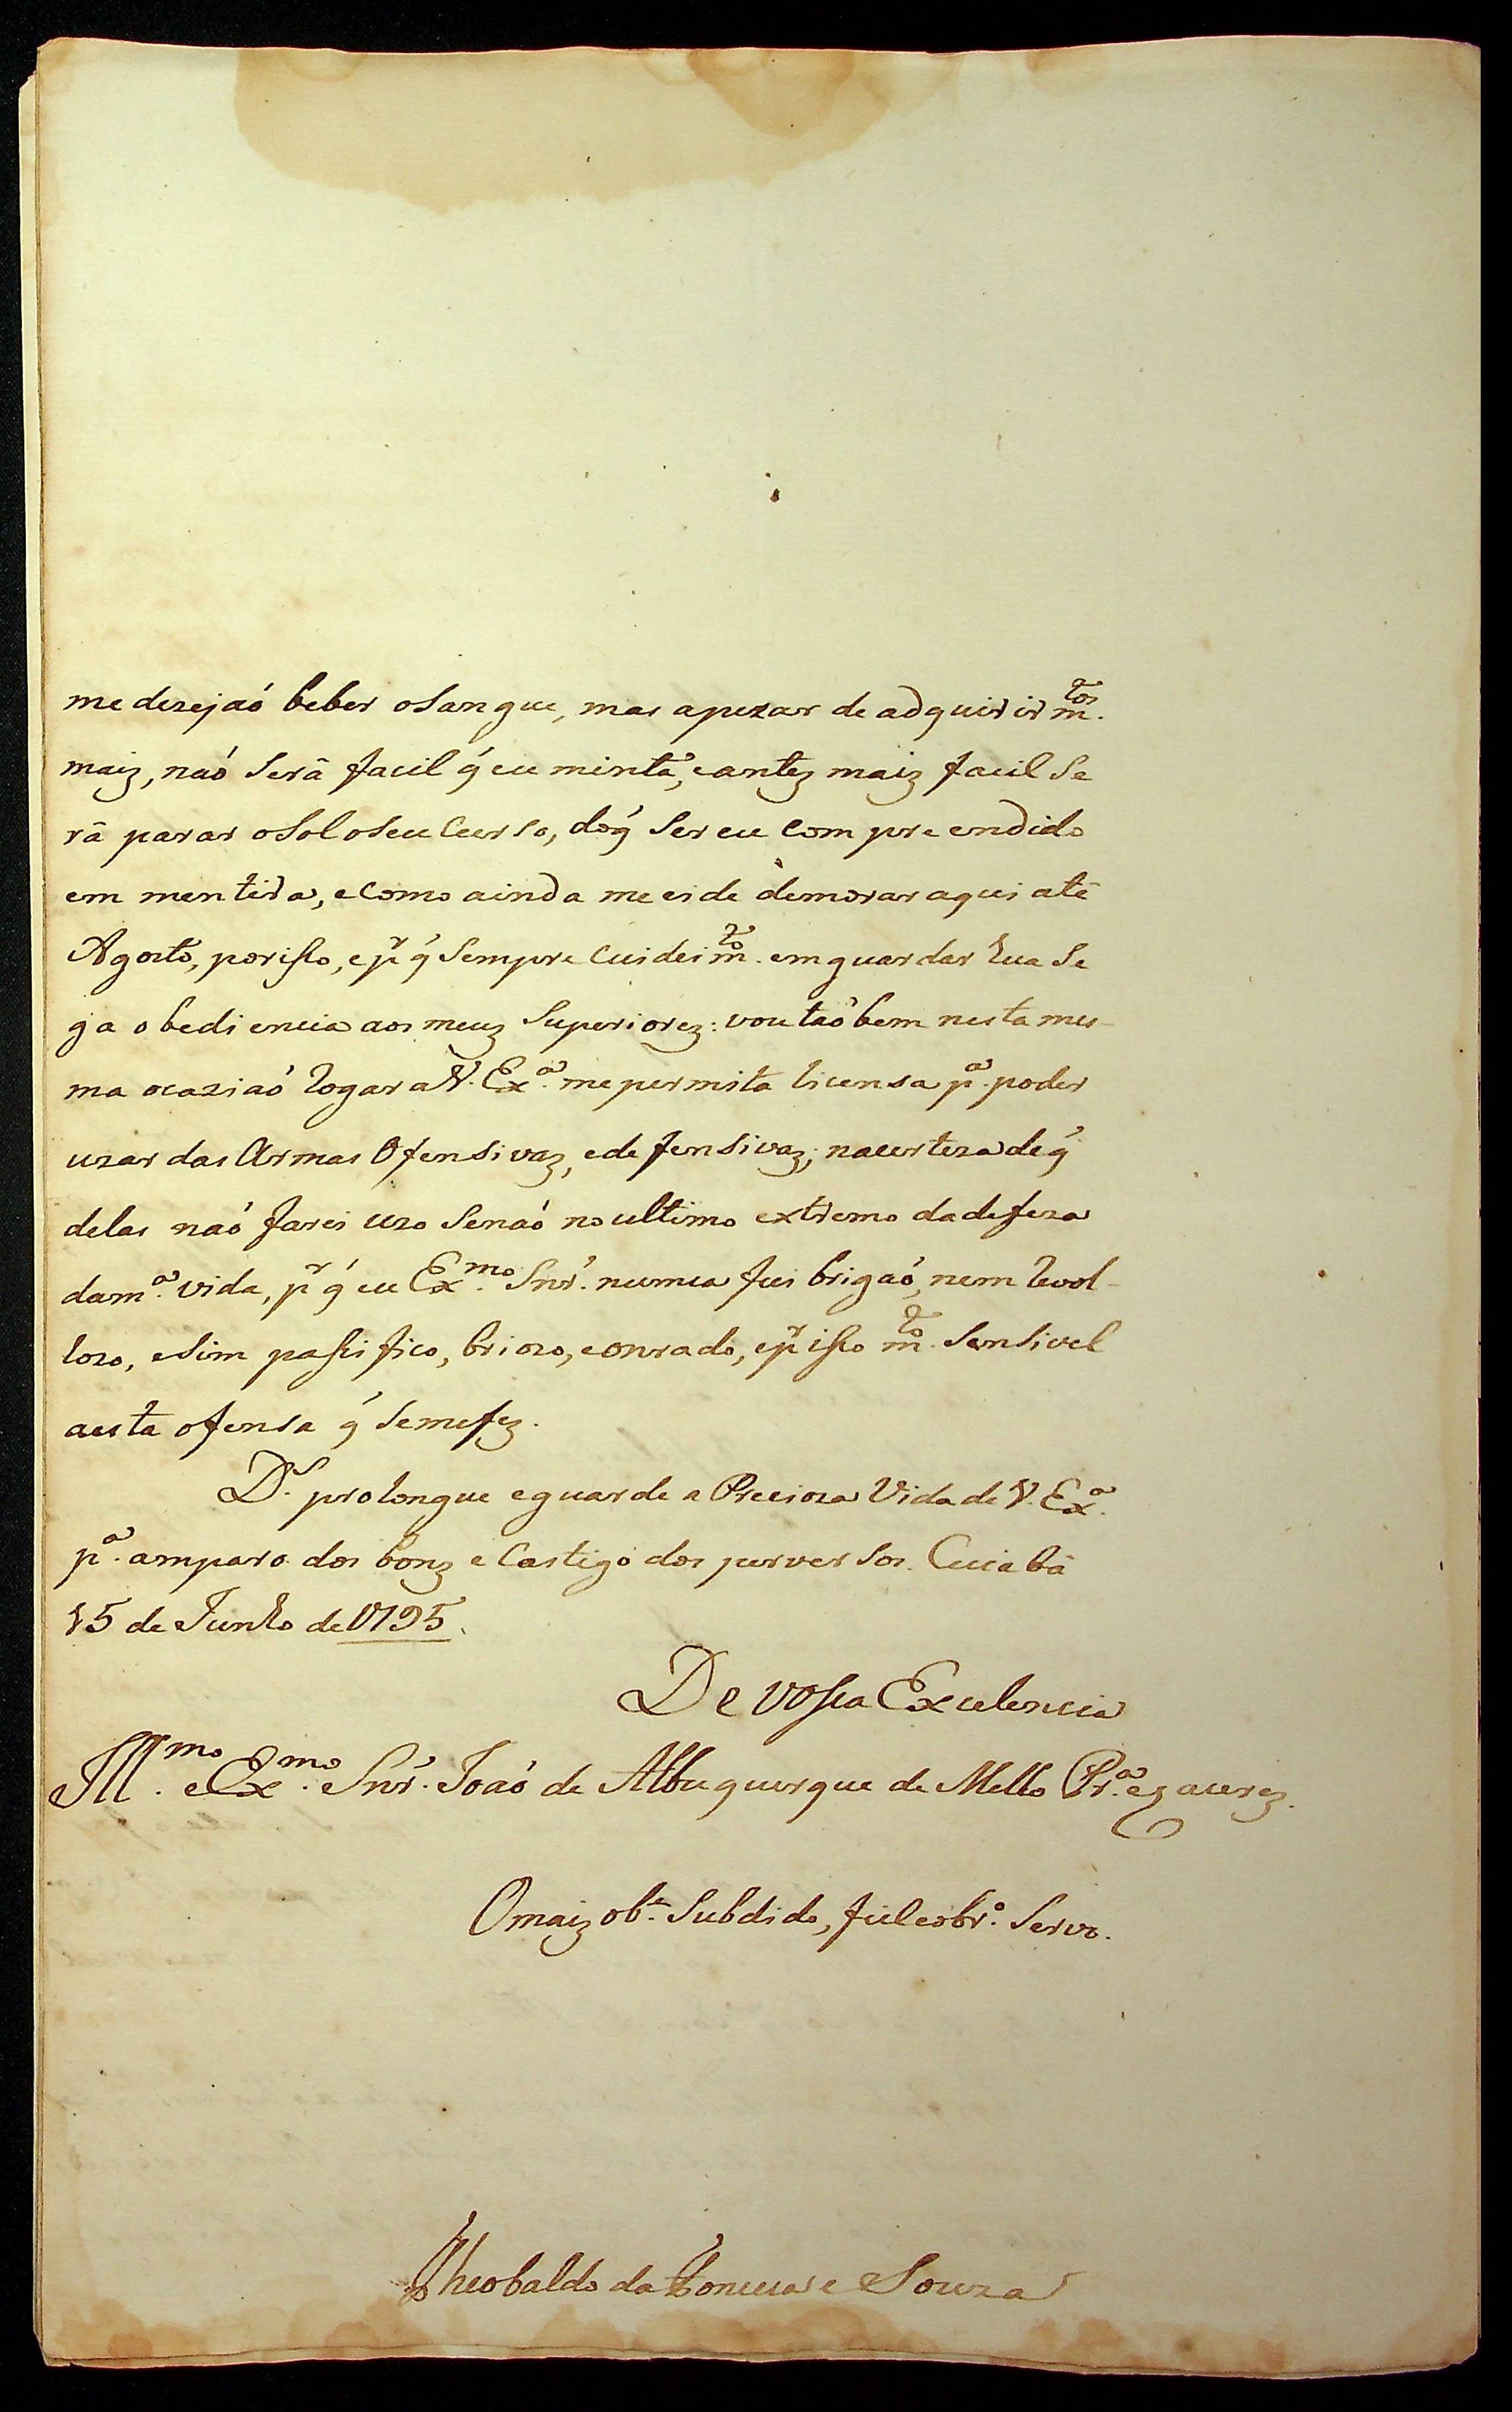 me dezejaõ beber o Sangue, mas apezar de adquirir m.tos
maiz, naõ Serâ facil q̃ eu minta, e antez maiz facil Se
râ parar o Sol o Seu Curso, do q̃ Ser eu Compreendido
em mentira, e Como ainda me ei de demorar aqui atê
Agosto, por iſso, e pr q̃ Sempre Cuidei m.to em guardar Sua Se
ga obediencia aos meuz Superiorez: vou taõ bem nesta mes-
ma ocaziaõ Rogar a V. Ex.a me permita licensa p.a poder
uzar das Armas Ofensivaz, e defensivaz, na certeza de q̃
delas naõ farei uzo Senaõ no ultimo extremo da defeza
da m.a vida, pr q̃ eu Ex.mo Snr. nunca fui brigaõ, nem Revol-
tozo, e Sim pasifico, briozo, e onrado, e pr iſso m.to Sensivel
a esta ofensa q̃ Se me fez.
D.s prolongue e guarde a Precioza Vida de V. Ex.a
p.a amparo dos bonz e Castigo dos perversos. Cuiabâ
15 de Junho de 1795.
De voſsa Excelencia
Ill.mo e Ex.mo Snr. Joaõ de Albuquerque de Mello Pr.a e Cacerez.
O maiz ob.e Subdido, fiel e obr.o Servo.
Theobaldo da Fonceca e Souza